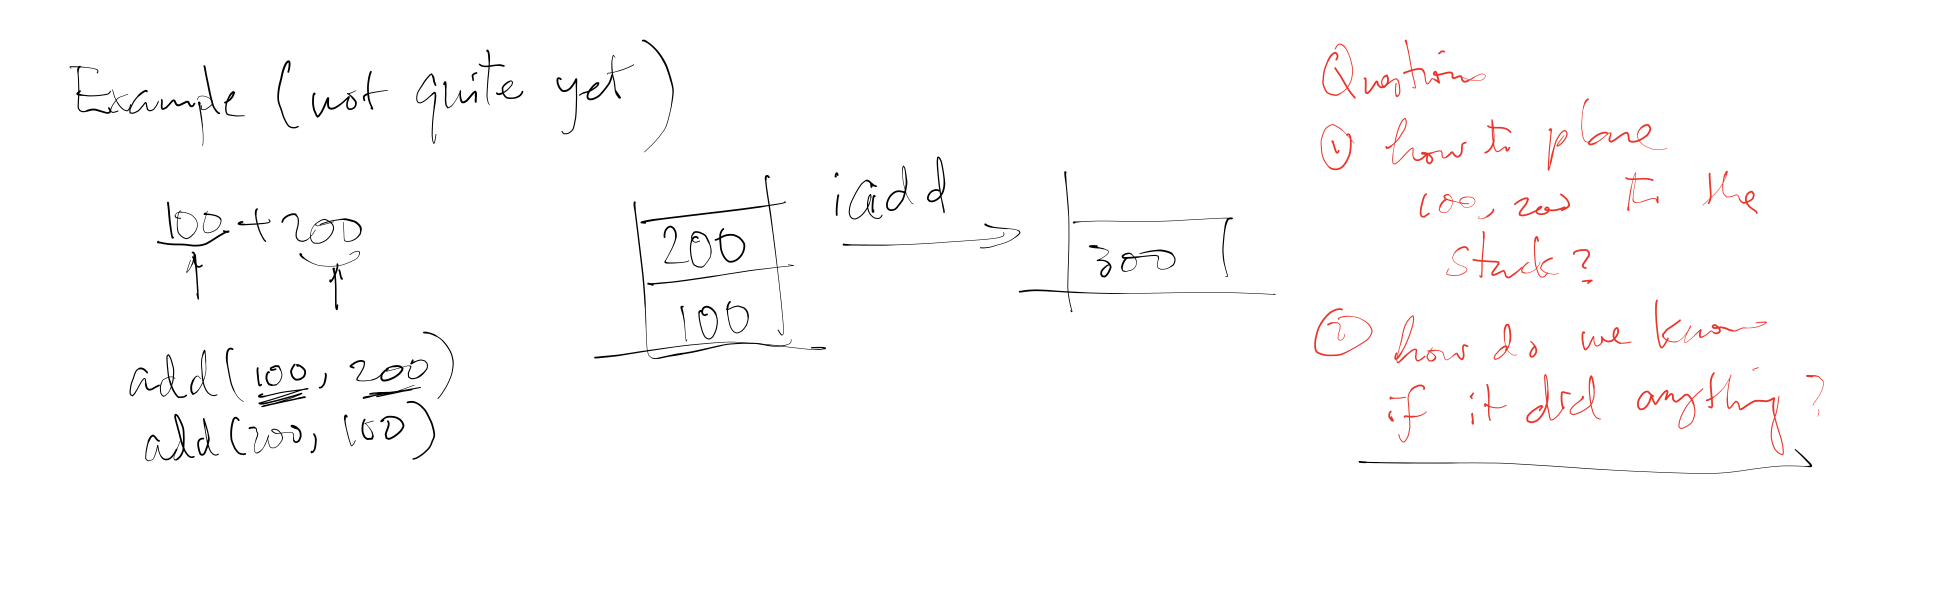 Example (not quite yet)
100 + 200
add(100, 200)
add(200, 100)
200
100
iadd
300
Questions
① how to place
100, 200 to the
stack?
② how do we know
if it did anything?